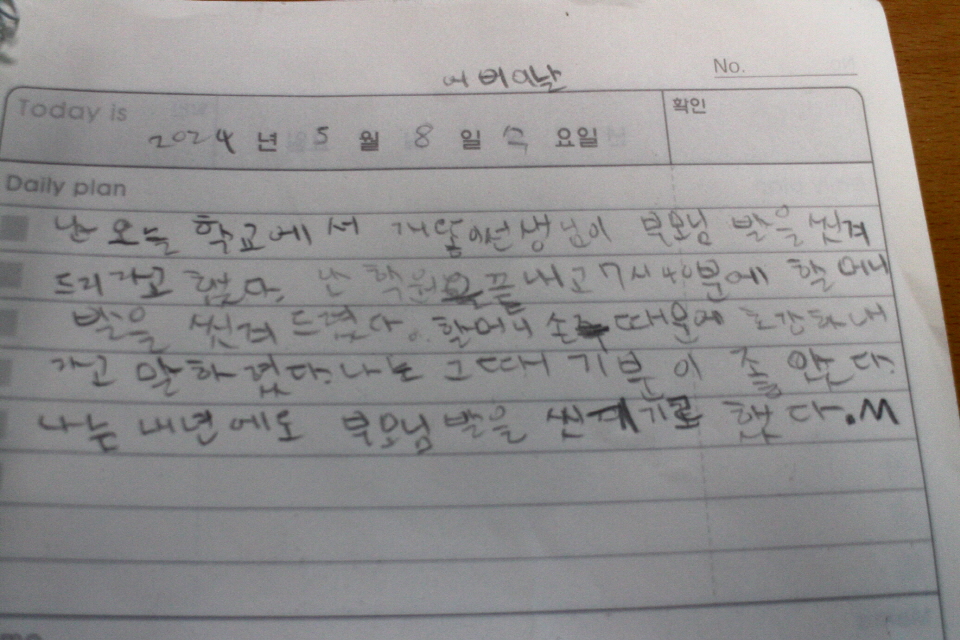 No.
어버이날
Today is
2024 년 5 월 8 일 수 요일
확인
Daily plan
난 오늘 학교에서 담 선생님이 부모님 발을 씻겨
드리라고 했다. 난 학원 끝내고 7시 40분에 할머니
발을 씻겨 드렸다. 할머니 손 때문에
말하 었다. 나는 그때 기분이 좋았다.
나는 내년에도 부모님 발을 씻 기로 했다.